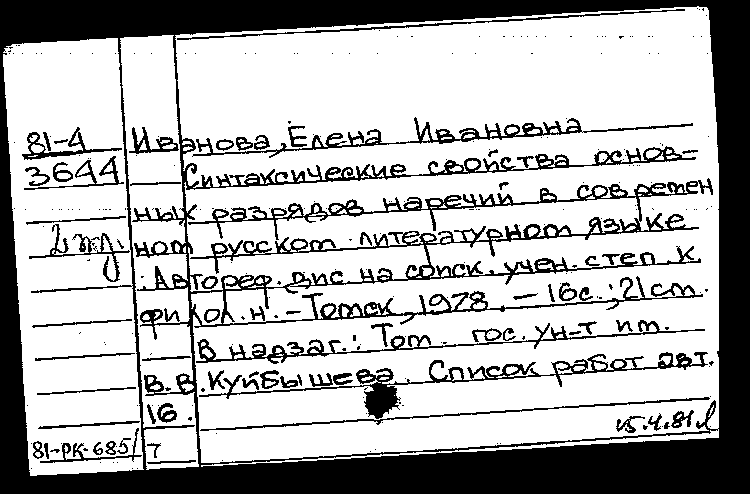 81-4 Иванова, Елена Ивановна
3644 Синтаксические свойства основ-
ных разрядов наречий в современ
ном русском литературном языке
: Автореф. дис. на соиск. учен. степ. к.
филол. н. – Томск, 1978. – 16с.; 21см.
В надзаг.: Том. гос. ун-т им.
В.В. Куйбышева. Список работ авт.:
16.
15.4.81
81-РК-685/7